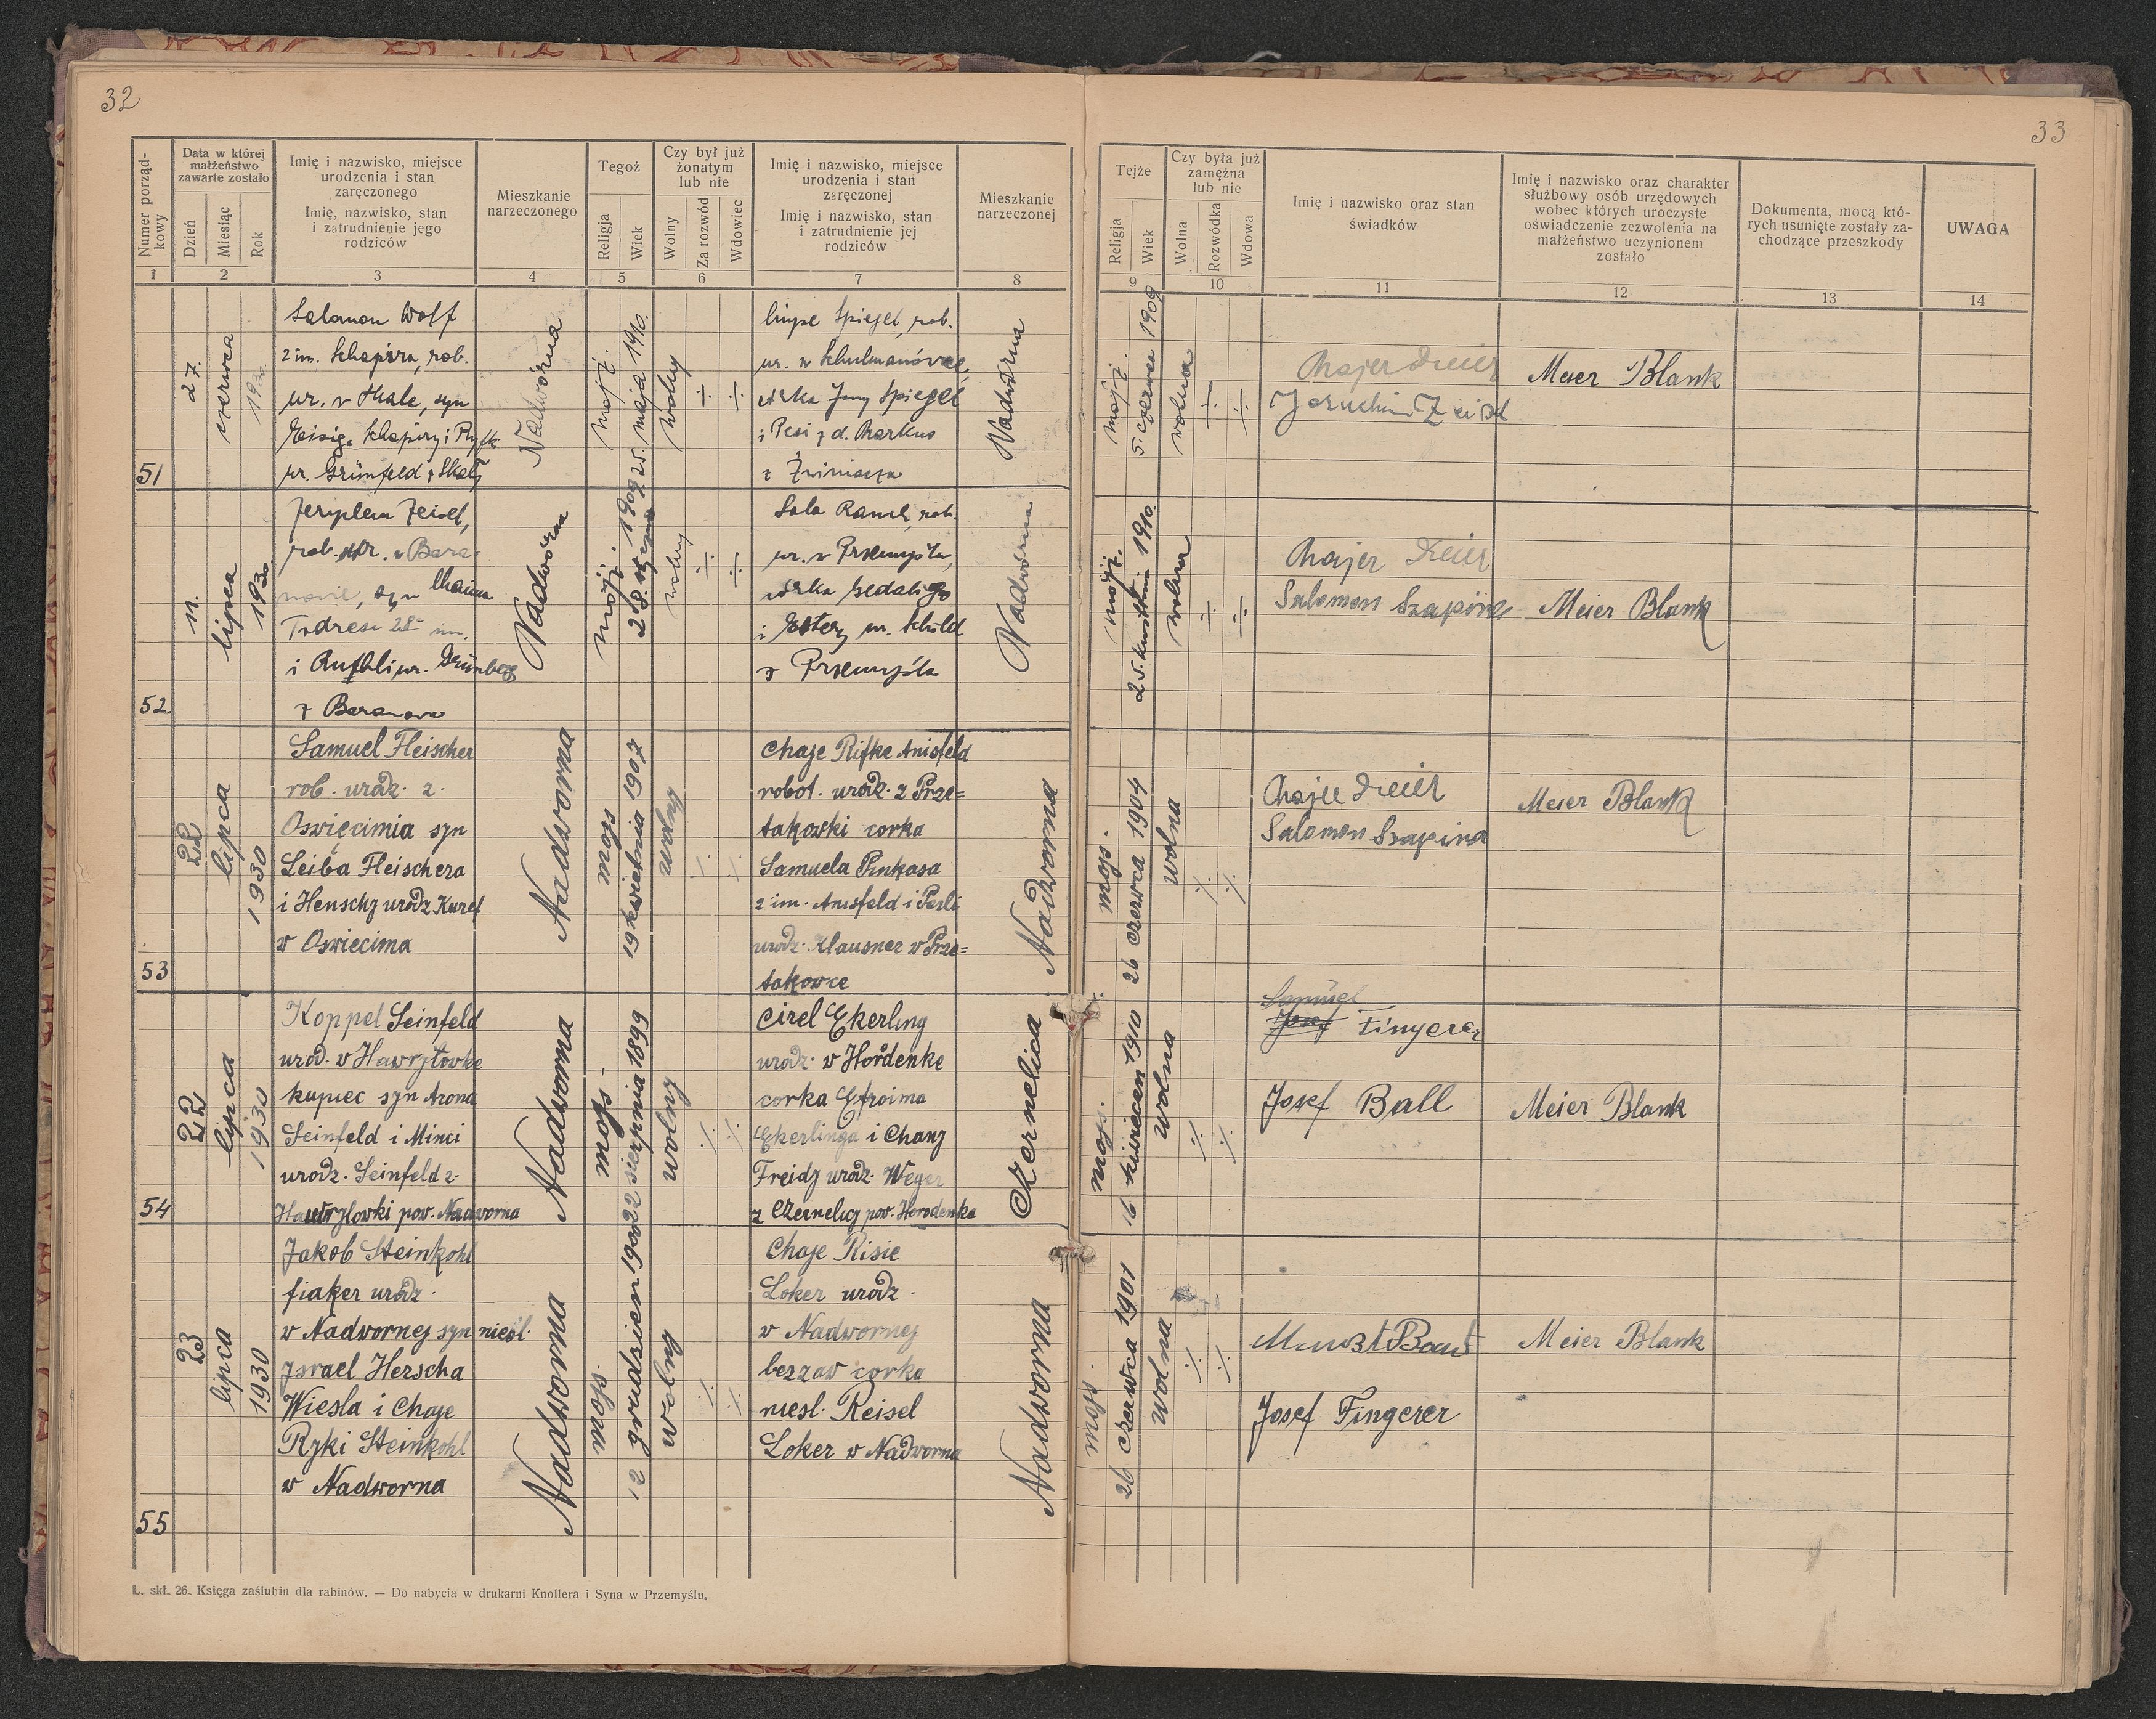 32
33
Numer porząd-
kowy
Data w której
małżeństwo
zawarte zostało
Dzień
Miesiąc
Rok
Imię i nazwisko, miejsce
urodzenia i stan
zaręczonego
Imię, nazwisko, stan
i zatrudnienie jego
rodziców
Mieszkanie
narzeczonego
Tegoż
Religja
Wiek
Czy był już
żonatym
lub nie
Wolny
Za rozwód
Wdowiec
Imię i nazwisko, miejsce
urodzenia i stan
zaręczonej
Imię i nazwisko, stan
i zatrudnienie jej
rodziców
Mieszkanie
narzeczonej
Tejże
Religja
Wiek
Czy była już
zamężna
lub nie
Wolna
Rozwódka
Wdowa
Imię i nazwisko oraz stan
świadków
Imię i nazwisko oraz charakter
służbowy osób urzędowych
wobec których uroczyste
oświadczenie zezwolenia na
małżeństwo uczynionem
zostało
Dokumenta, mocą któ-
rych usunięte zostały za-
chodzące przeszkody
UWAGA
1 2 3 4 5 6 7 8 9 10 11 12 13 14
51
27.
czerwca
1930
Salomon Wolf
2 im. Schapira, rob.
ur. w Skale, syn
Eisiga Schapiry i
ur. Grünfeld z Skały
Nadwórna
mojż.
25. maja 1910.
wolny
÷ ÷
Spiegel, rob.
ur. w
córka Spiegel
i Pesi z d. Markus
z Żwiniacza
Nadwórna
mojż.
5. czerwca 1909
wolna
÷ ÷
Majer Dreier
Meier Blank
52.
11.
lipca
1930
Zeisel,
rob. ur. w Bara-
nowie, syn Chaima
im.
i ur. Grünberg
z Baranowa
Nadwórna
mojż.
28. 1909.
wolny
÷ ÷
Sala rob.
ur. w Przemyślu,
córka Gedaliego
i Estery ur. Schild
z Przemyśla
Nadwórna
mojż.
25. kwietnia 1910.
wolna
÷ ÷
Majer Dreier
Salomon Szapira
Meier Blank
53
22
lipca
1930
Samuel Fleischer
rob. urodz. z
Oswięcimia syn
Leiba Fleischera
i Henschy urodz. Kuref
w Oswiecima
Nadworna
mojs
19 kwietnia 1907
wolny
÷ ÷
Chaje Rifke Anisfeld
robot. urodz. z Prze=
takowski corka
Samuela Pinkasa
2 im. Anisfeld i Perli
urodz. Klausner w Prze=
takowce
Nadworna
mojs.
26 czerwca 1904
wolna
÷ ÷
Majer Dreier
Salomon Szapira
Meier Blank
54
22
lipca
1930
Koppel Seinfeld
urod. w Hawryłowke
kupiec syn Arona
Seinfeld i Minci
urodz. Seinfeld z
Hawryłowki pow. Nadworna
Nadworna
mojs.
22 sierpnia 1899
wolny
÷ ÷
Cirel Ekerling
urodz. w Hordenke
corka Efroima
Ekerlinga i Chany
Freidy urodz. Weyer
z Czernelicy pow. Horodenka
Czernelica
mojs.
16 kwiecen 1910
wolna
÷ ÷
Samuel
Josef Fingerer
Josef Ball
Meier Blank
55
23
lipca
1930
Jakob Steinkohl
fiaker urodz.
w Nadwornej syn niesl.
Jsrael Herscha
Wiesla i Chaje
Ryki Steinkohl
w Nadworna
Nadworna
mojs.
12 grudzien 1902
wolny
÷ ÷
Chaje Risie
Loker urodz.
w Nadwornej
bezzaw corka
niesl. Reisel
Loker w Nadworna
Nadworna
mojs.
26 czerwca 1901
wolna
÷ ÷
Meier Blank
Josef Fingerer
L. skł. 26. Księga zaślubin dla rabinów. — Do nabycia w drukarni Knollera i Syna w Przemyślu.